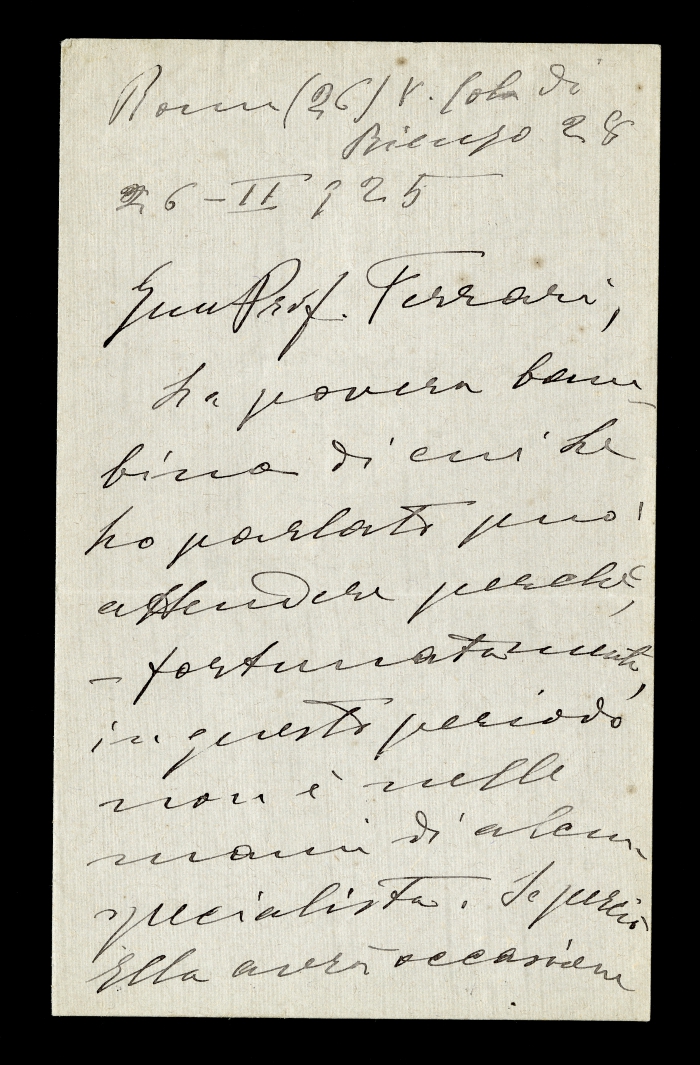 Roma (26) V. Cola di
Rienzo 28
26-II 925
Prof. Ferrari,
La povera bam-
bina di cui Le
ho parlato può
attendere perchè,
- fortunatamente,
in questo periodo
non è nelle
mani di alcun
specialista. Se perciò
Ella avrà occasione